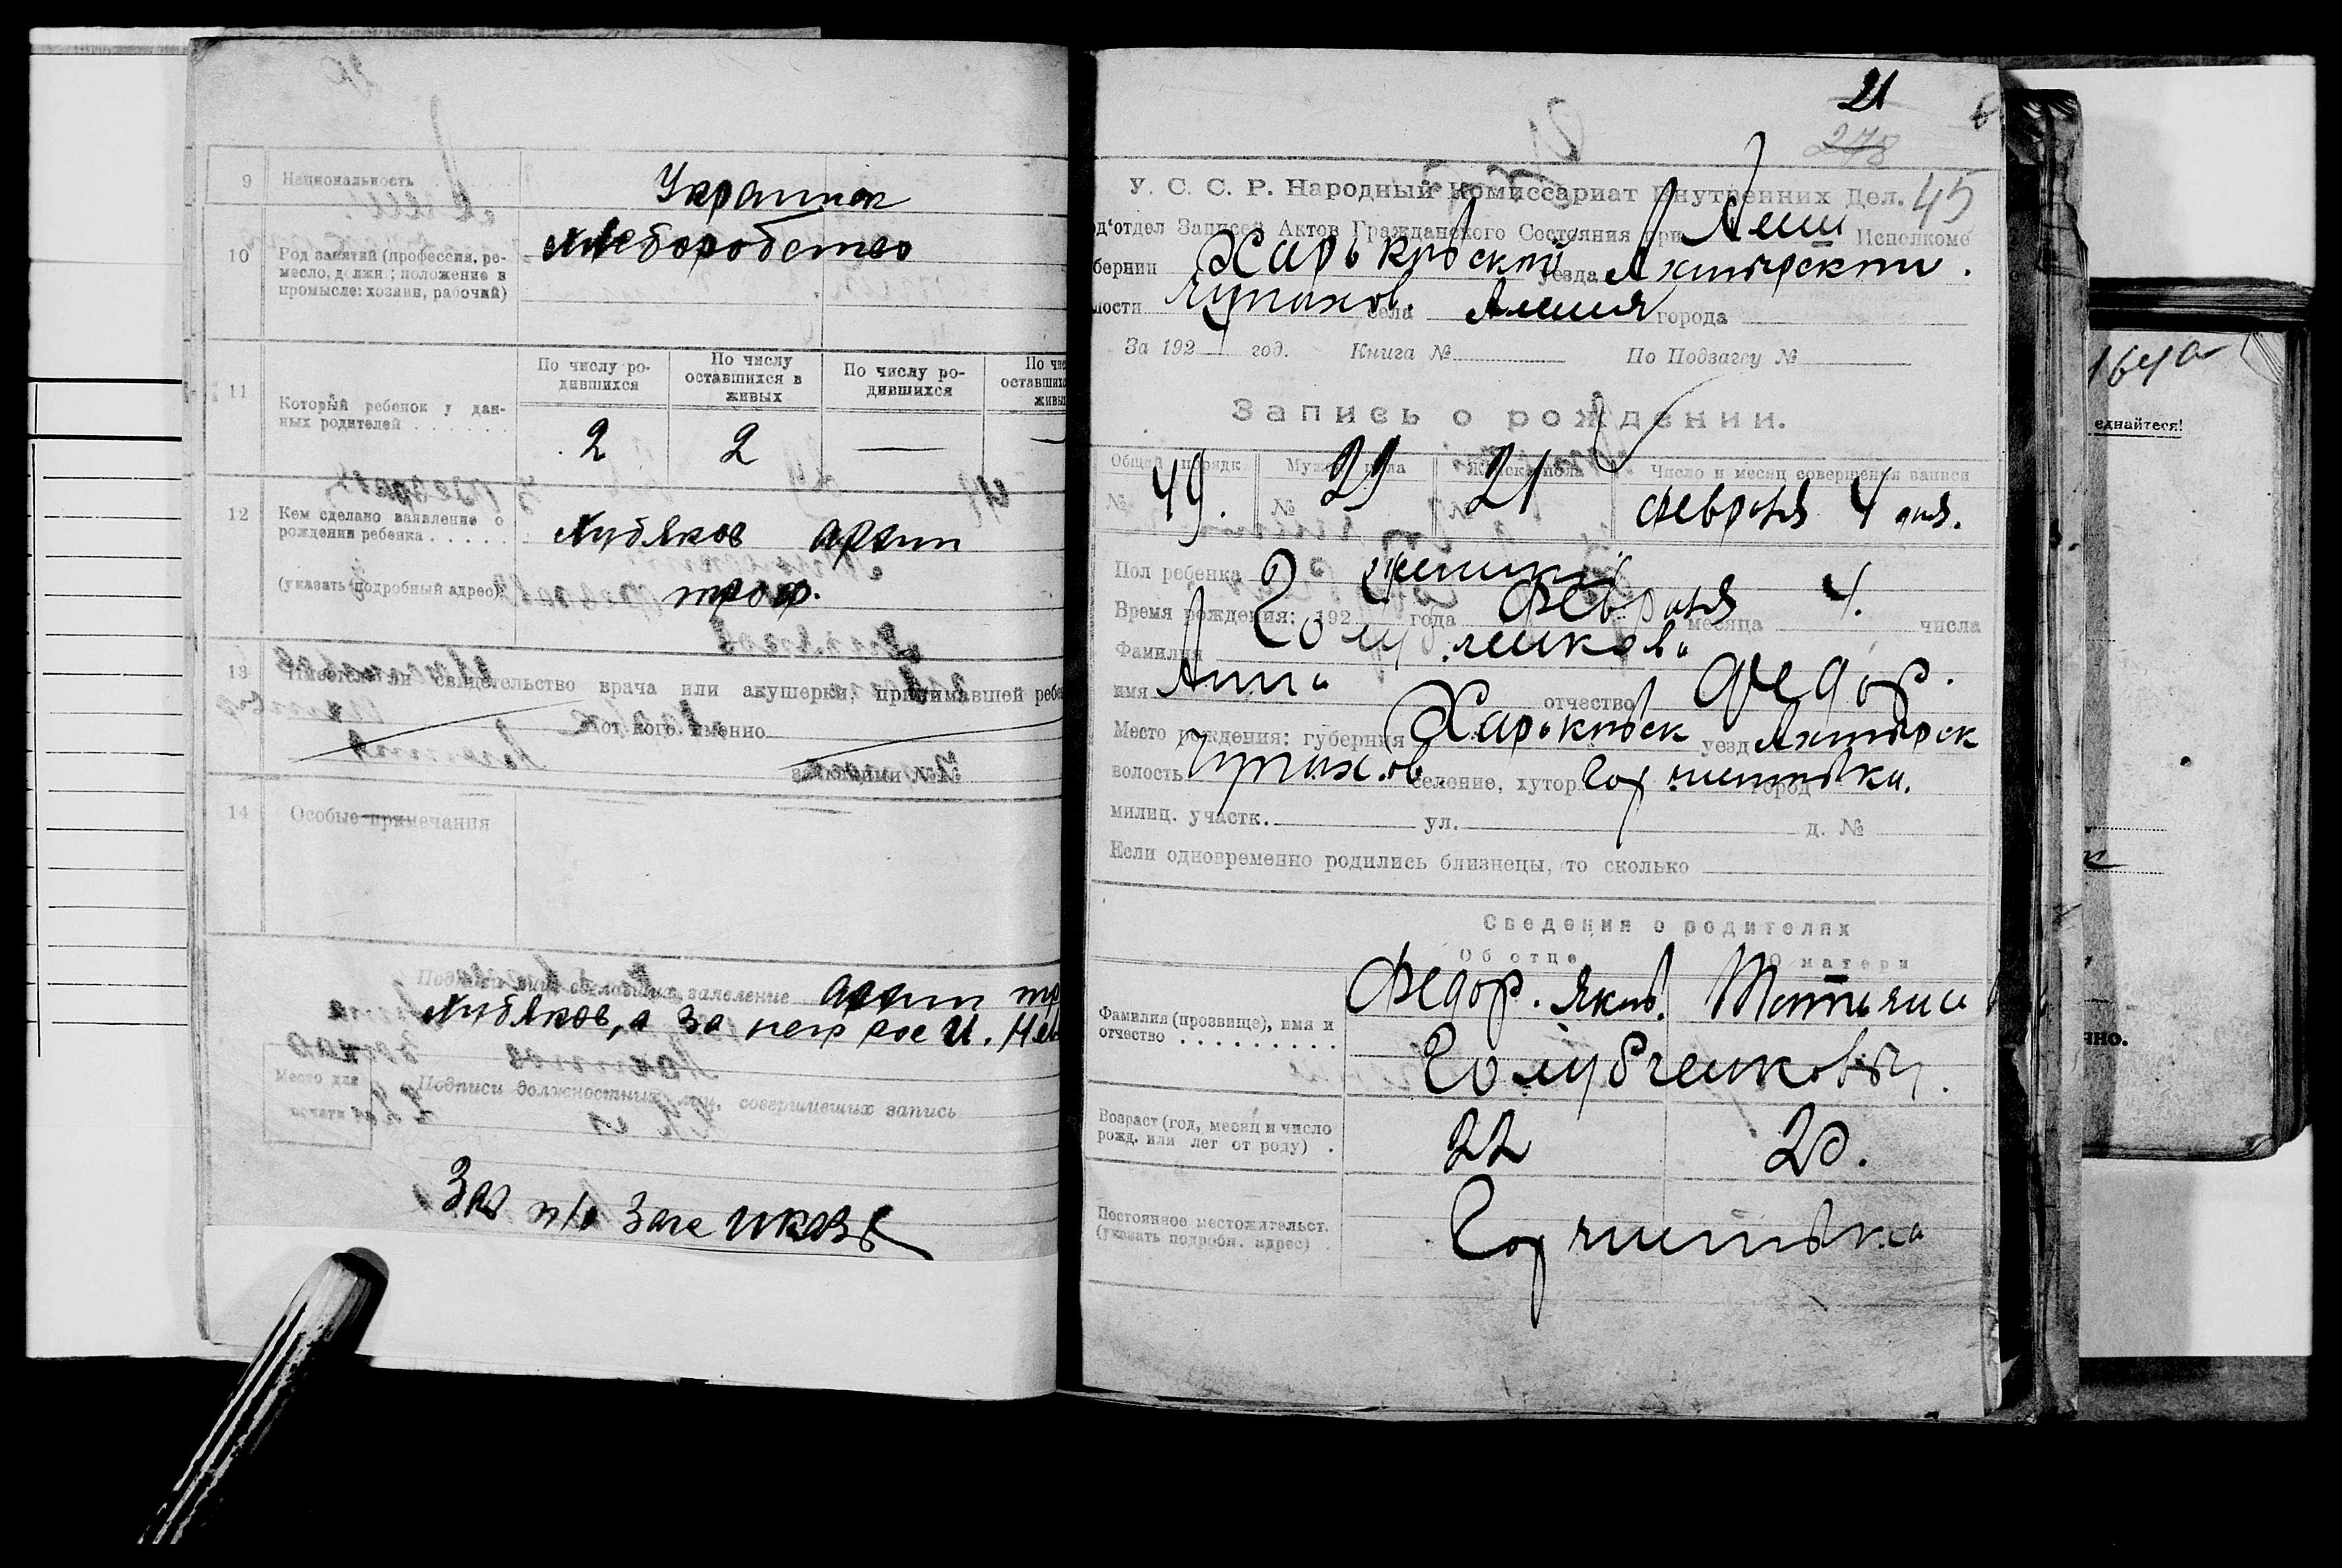 9 Национальность
Украинск
10 Род занятий (профессия, ре-
месло, должн.; положение в
промысле: хозяин, рабочий)
Хлеборобство
11 Который ребенок у дан-
ных родителей
По числу ро-
дившихся
По числу
оставшихся в
живых
По числу ро-
дившихся
По чис
оставшихся
живы
2 2 — —
12 Кем сделано заявление о
рождении ребенка
(указать подробный адрес)
Архип
троф.
13 Имеется ли свидетельство врача или акушерки, принимавшей ребе
от кого именно
за №
14 Особые примечания
Подписи лиц, сделавших заявление Архип
а за негр рос И.
Место для
печати
Подписи должностных лиц, совершивших запись
Зав п/о
21
278
У. С. С. Р. Народный Комиссариат Внутренних Дел. 45
д'отдел Записей Актов Гражданского Состояния при Исполкоме
бернии Харьковской уезда Ахтырского.
лости Чупахов. села города
За 192 год. Книга № По Подзагсу №
Запись о рождении.
Общий порядк Мужск. пола Женск. пола Число и месяц совершения записи
№ 49. № 29 21 Февраля 4 дня.
Пол ребенка женский
Время рождения: 192 2 года Февраля месяца 4. числа
Фамилия Голубченкова
имя Анна отчество Федор.
Место рождения: губерния Харьковск уезд Ахтырск
волость Чупахов селение, хутор город
милиц. участк. ул. д. №
Если одновременно родились близнецы, то сколько
Сведения о родителях
Об отце О матери
Фамилия (прозвище), имя и
отчество
Федор. Яков. Татьяна
Голубченковы.
Возраст (год, месяц и число
рожд. или лет от роду)
22 20.
Постоянное местожительст.
(указать подробн. адрес)
164а
еднайтеся!